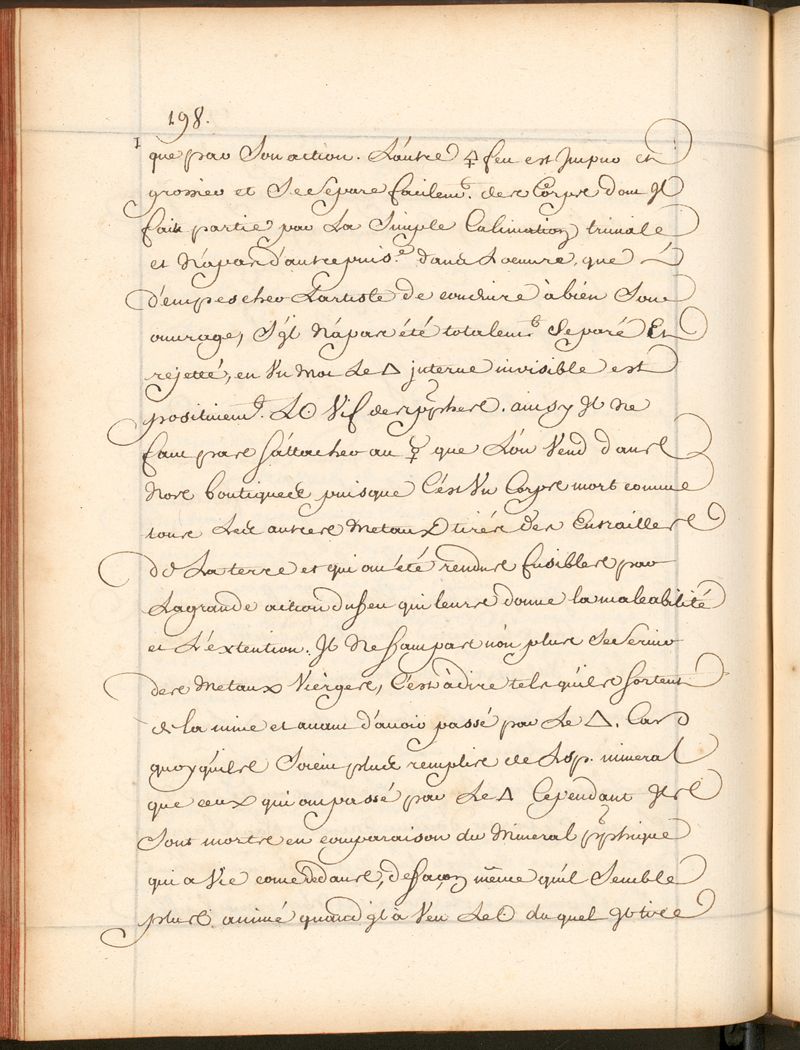 198.
que par Son action. L'autre 🜍 feu est Impur et
grossier et Se Separe facilemt. des Corps dont Il
fait partie par La Simple Calcination triviale
et N'a pas d'autre puisce. dans L'oeuvre, que
d'empescher L'artiste de conduire à bien Son
ouvrage, S'il N'a pas été totalemt. Separé Et
rejetté, en Un Mot Le 🜂 interne invisible est
positivemt. Le Vif des pphes. ainsy Il Ne
faut pas s'attacher au ☿ que L'on Vend dans
Nos boutiques puisque C'est Un Corps mort comme
tous Les autres Metaux tirés des Entrailles
de La terre et qui ont été rendus fusibles par
La grande action du feu qui leurs donne la maleabilité
et L'extention. Il Ne faut pas non plus Se Servir
des Metaux Vierges, C'est à dire tels qu'ils sortent
de la mine et avant d'avoir passé par Le 🜂. Car
quoy qu'ils Soient plus remplis de L'esp. mineral
que ceux qui ont passé par Le 🜂 Cependant Ils
Sont morts en comparaison du Mineral pphique
qui a Vie come dedans, de façon même qu'il Semble
plus animé quand il a Veu Le duquel Il tire